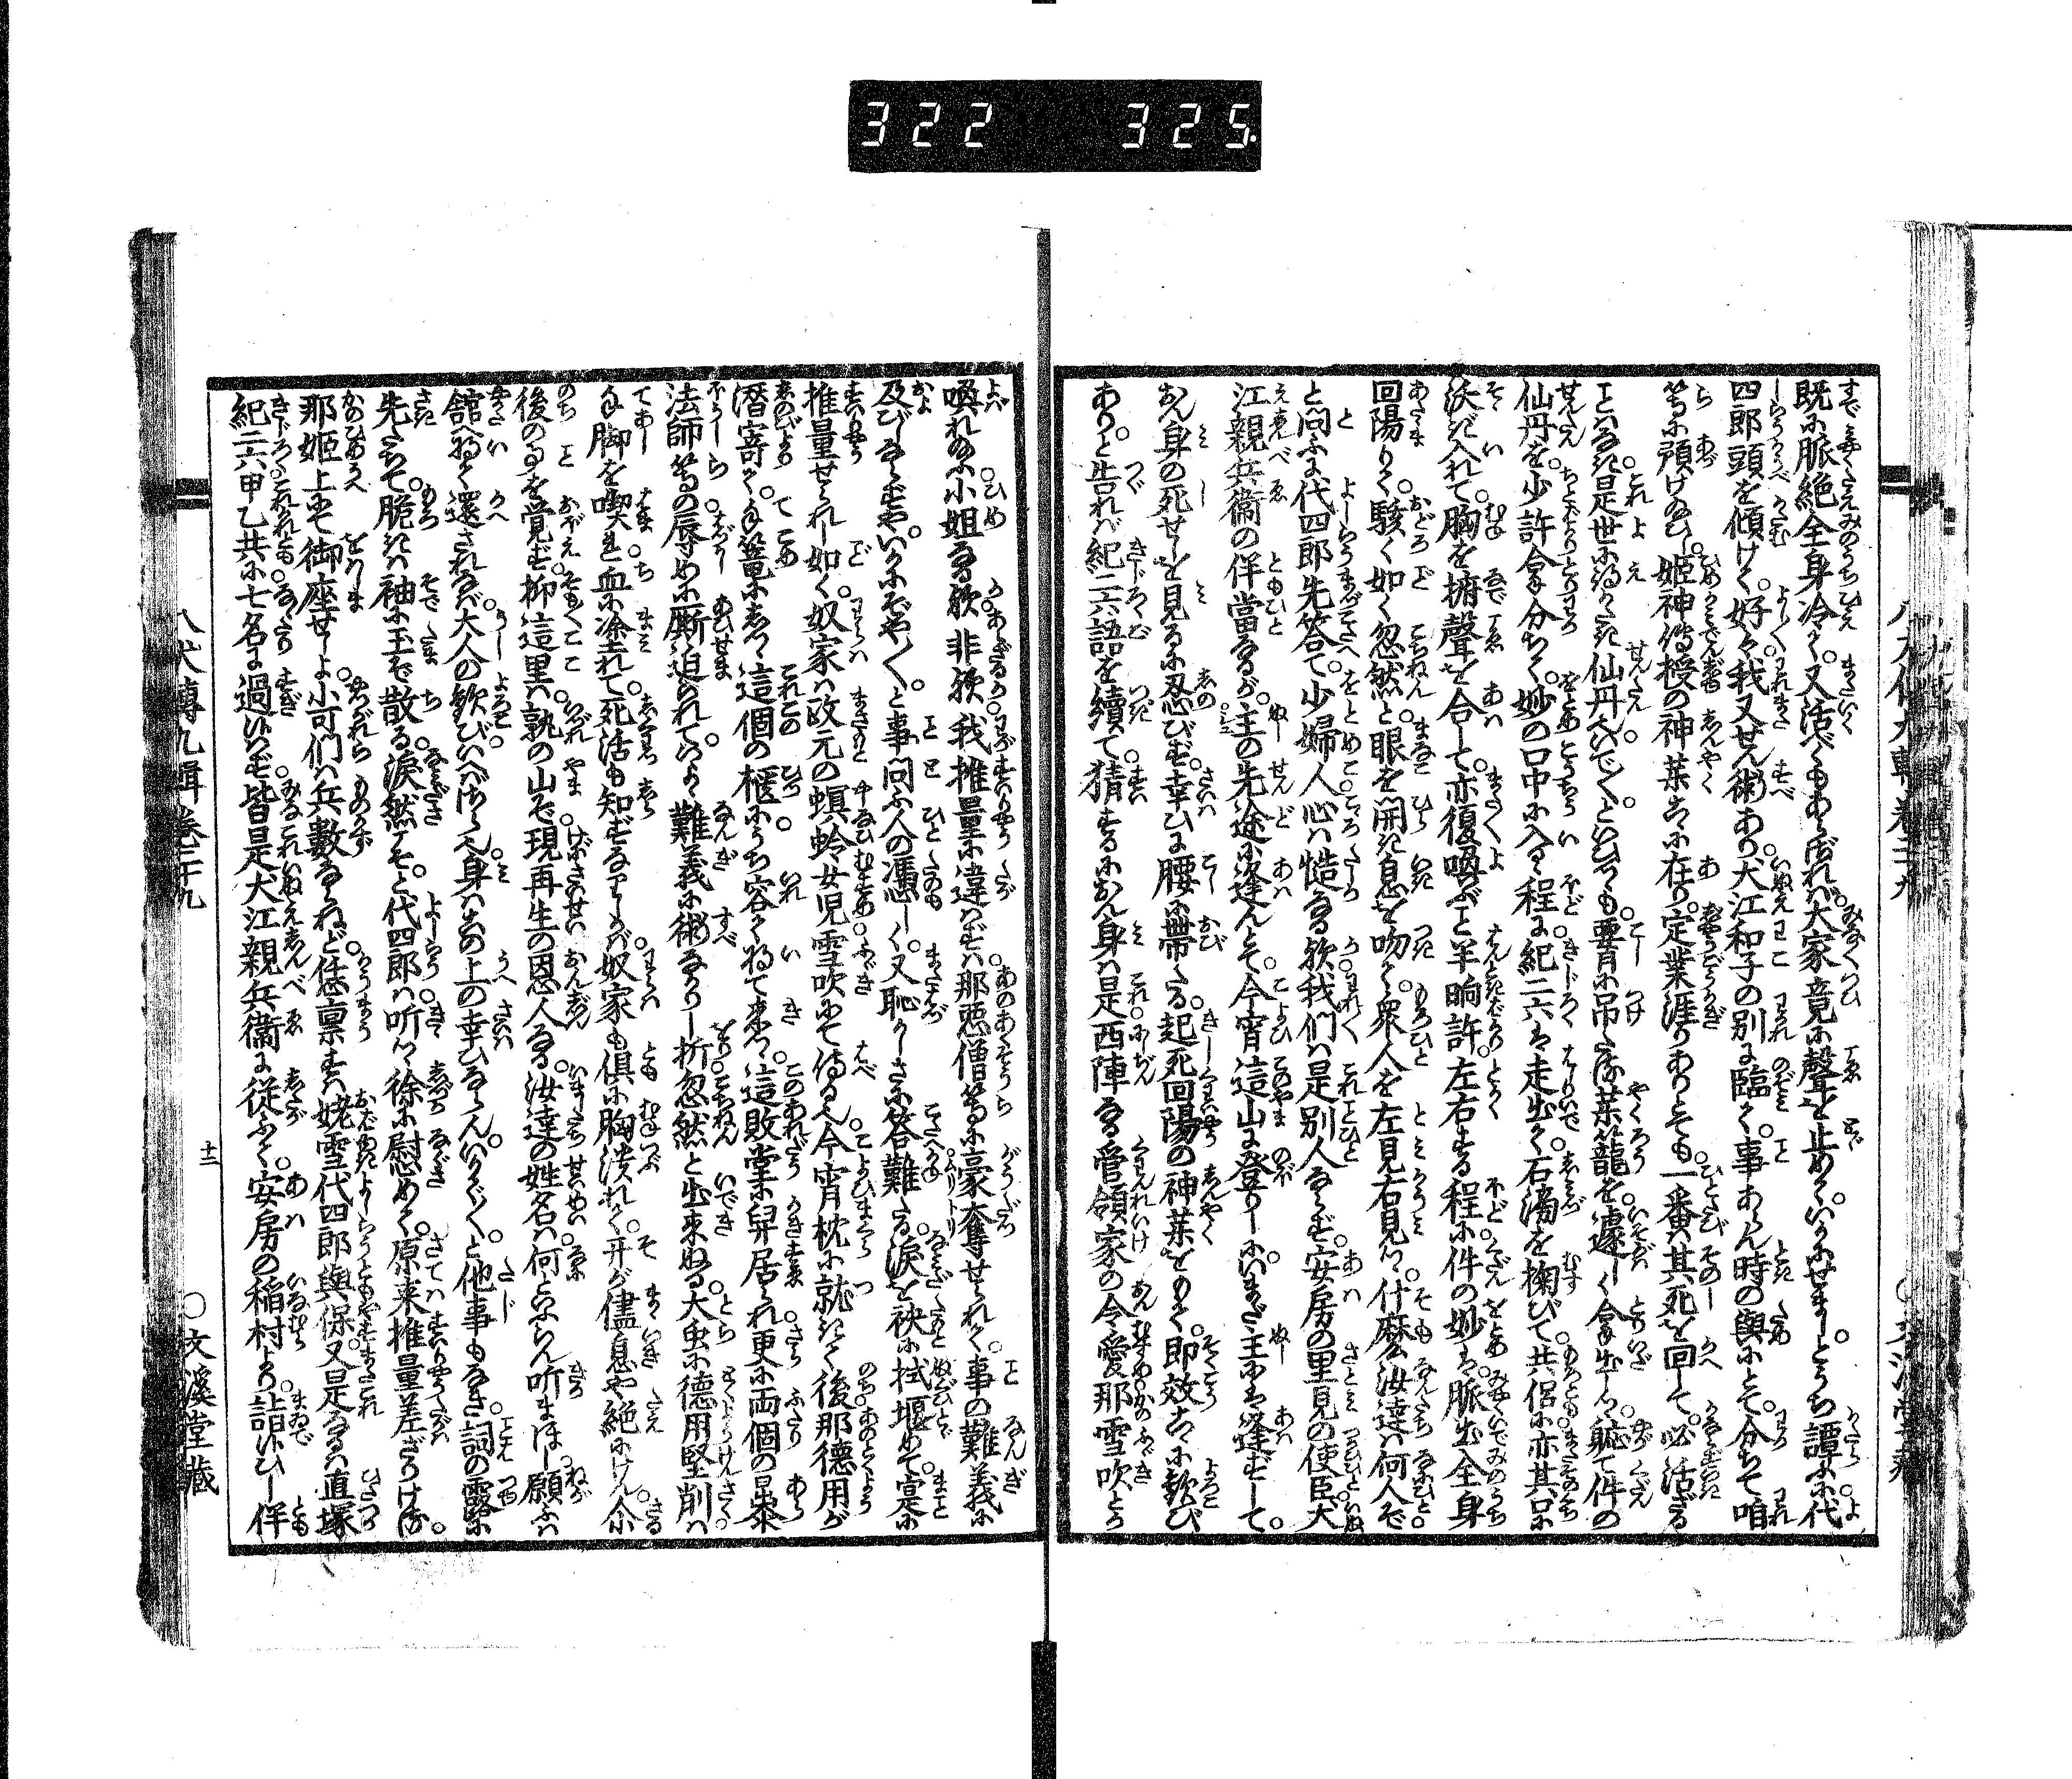 322 325
既に脈絶全身冷て又活べくもあらざれバ大家竟に聲を止めていかにせましとうち譚ふ代
四郎頭を傾けて好々我又せん術あり犬江和子の別に臨て事あらん時の與にとて分ちて咱
等に預けたまひし姫神傳授の神薬こゝに在り定業涯りありとても一番其死を回して必活ざる
ことハなき是世に得がたき仙丹也いでいでといひつゝも要背に吊たる薬籠を遽しく拿出しつゝ軈て件の
仙丹を少許拿分ちて妙の口中に入るゝ程に紀二六ハ走出て石滴を掬びて共侶に亦其口に
沃ぎ入れて胸を拊聲を合して亦復喚ぶこと半晌許左右する程に件の妙ハ脈出全身
回陽りて駭く如く忽然と眼を開き息を吻きて衆人を左見右見つゝ什麼汝達ハ何人ぞ
と問ふに代四郎先答て少婦人心ハ慥なる歟我們ハ是別人ならず安房の里見の使臣犬
江親兵衛の伴當なるが主の先途に逢んとて今宵這山に登りしにいまだ主にハ逢ずして
おん身の死せしを見るに忍びず幸ひに腰に帯たる起死回陽の神薬をもて即效こゝに歓び
ありと告れバ紀二六語を續て猜するにおん身ハ是西陣なる管領家の令愛那雪吹とか
喚れぬふ小姐なる歟非歟我推量に違ハずバ那悪僧等に豪奪せられて事の難義に
及びしならずやいかにぞやいかにぞやと事問ふ人の憑しく又恥かしさに答難たる涙を袂に拭堰めて寔に
推量せられし如く奴家ハ政元の螟蛉女児雪吹にて侍る也今宵枕に就きて後那徳用が
潜寄て手篭にしつゝ這個の櫃にうち容て将て来つゝ這敗堂に舁居られ更に両個の暴
法師等の辱めに厮迫られていよゝ難義に術なかりし折忽然と出来ぬる大虫に徳用堅削ハ
手脚を喫れ血に塗れて死活も知ずなりしかバ奴家も倶に胸潰れて开が儘息や絶にけん尓
後の事を覚ず抑這里ハ孰の山ぞ現再生の恩人なる汝達の姓名ハ何とかいふらん聴まほし願ふハ
舘へ将て還されなバ大人の歓びいへばさら也身ハこの上の幸ひならんいかでいかでと他事もなき詞の露に
先たちて脆きハ袖に玉ぞ散る涙然こそと代四郎ハ听つゝ徐に慰めて原来推量差ざりけり
那姫上にて御座せしよ小可們ハ兵數ならねど恁稟すハ姥雪代四郎與保又是なるハ直塚
紀二六甲乙共に七名に過ハせず皆是犬江親兵衛に従ふて安房の稲村より詣ひし伴
八犬傳九輯巻三十九 十二 ○文溪堂藏